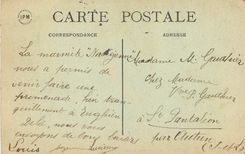 CARTE POSTALE
CORRESPONDANCE
ADRESSE
La marmite
nous a permis de
venir faire une
promenade, bien tran
quillement à Enghien
Delà nous vous
envoyons de bons baisers
Louis
Madame M. Gauthier
Chez Madame
Vve P. Gauthier
à St Pantaléon
par Autun